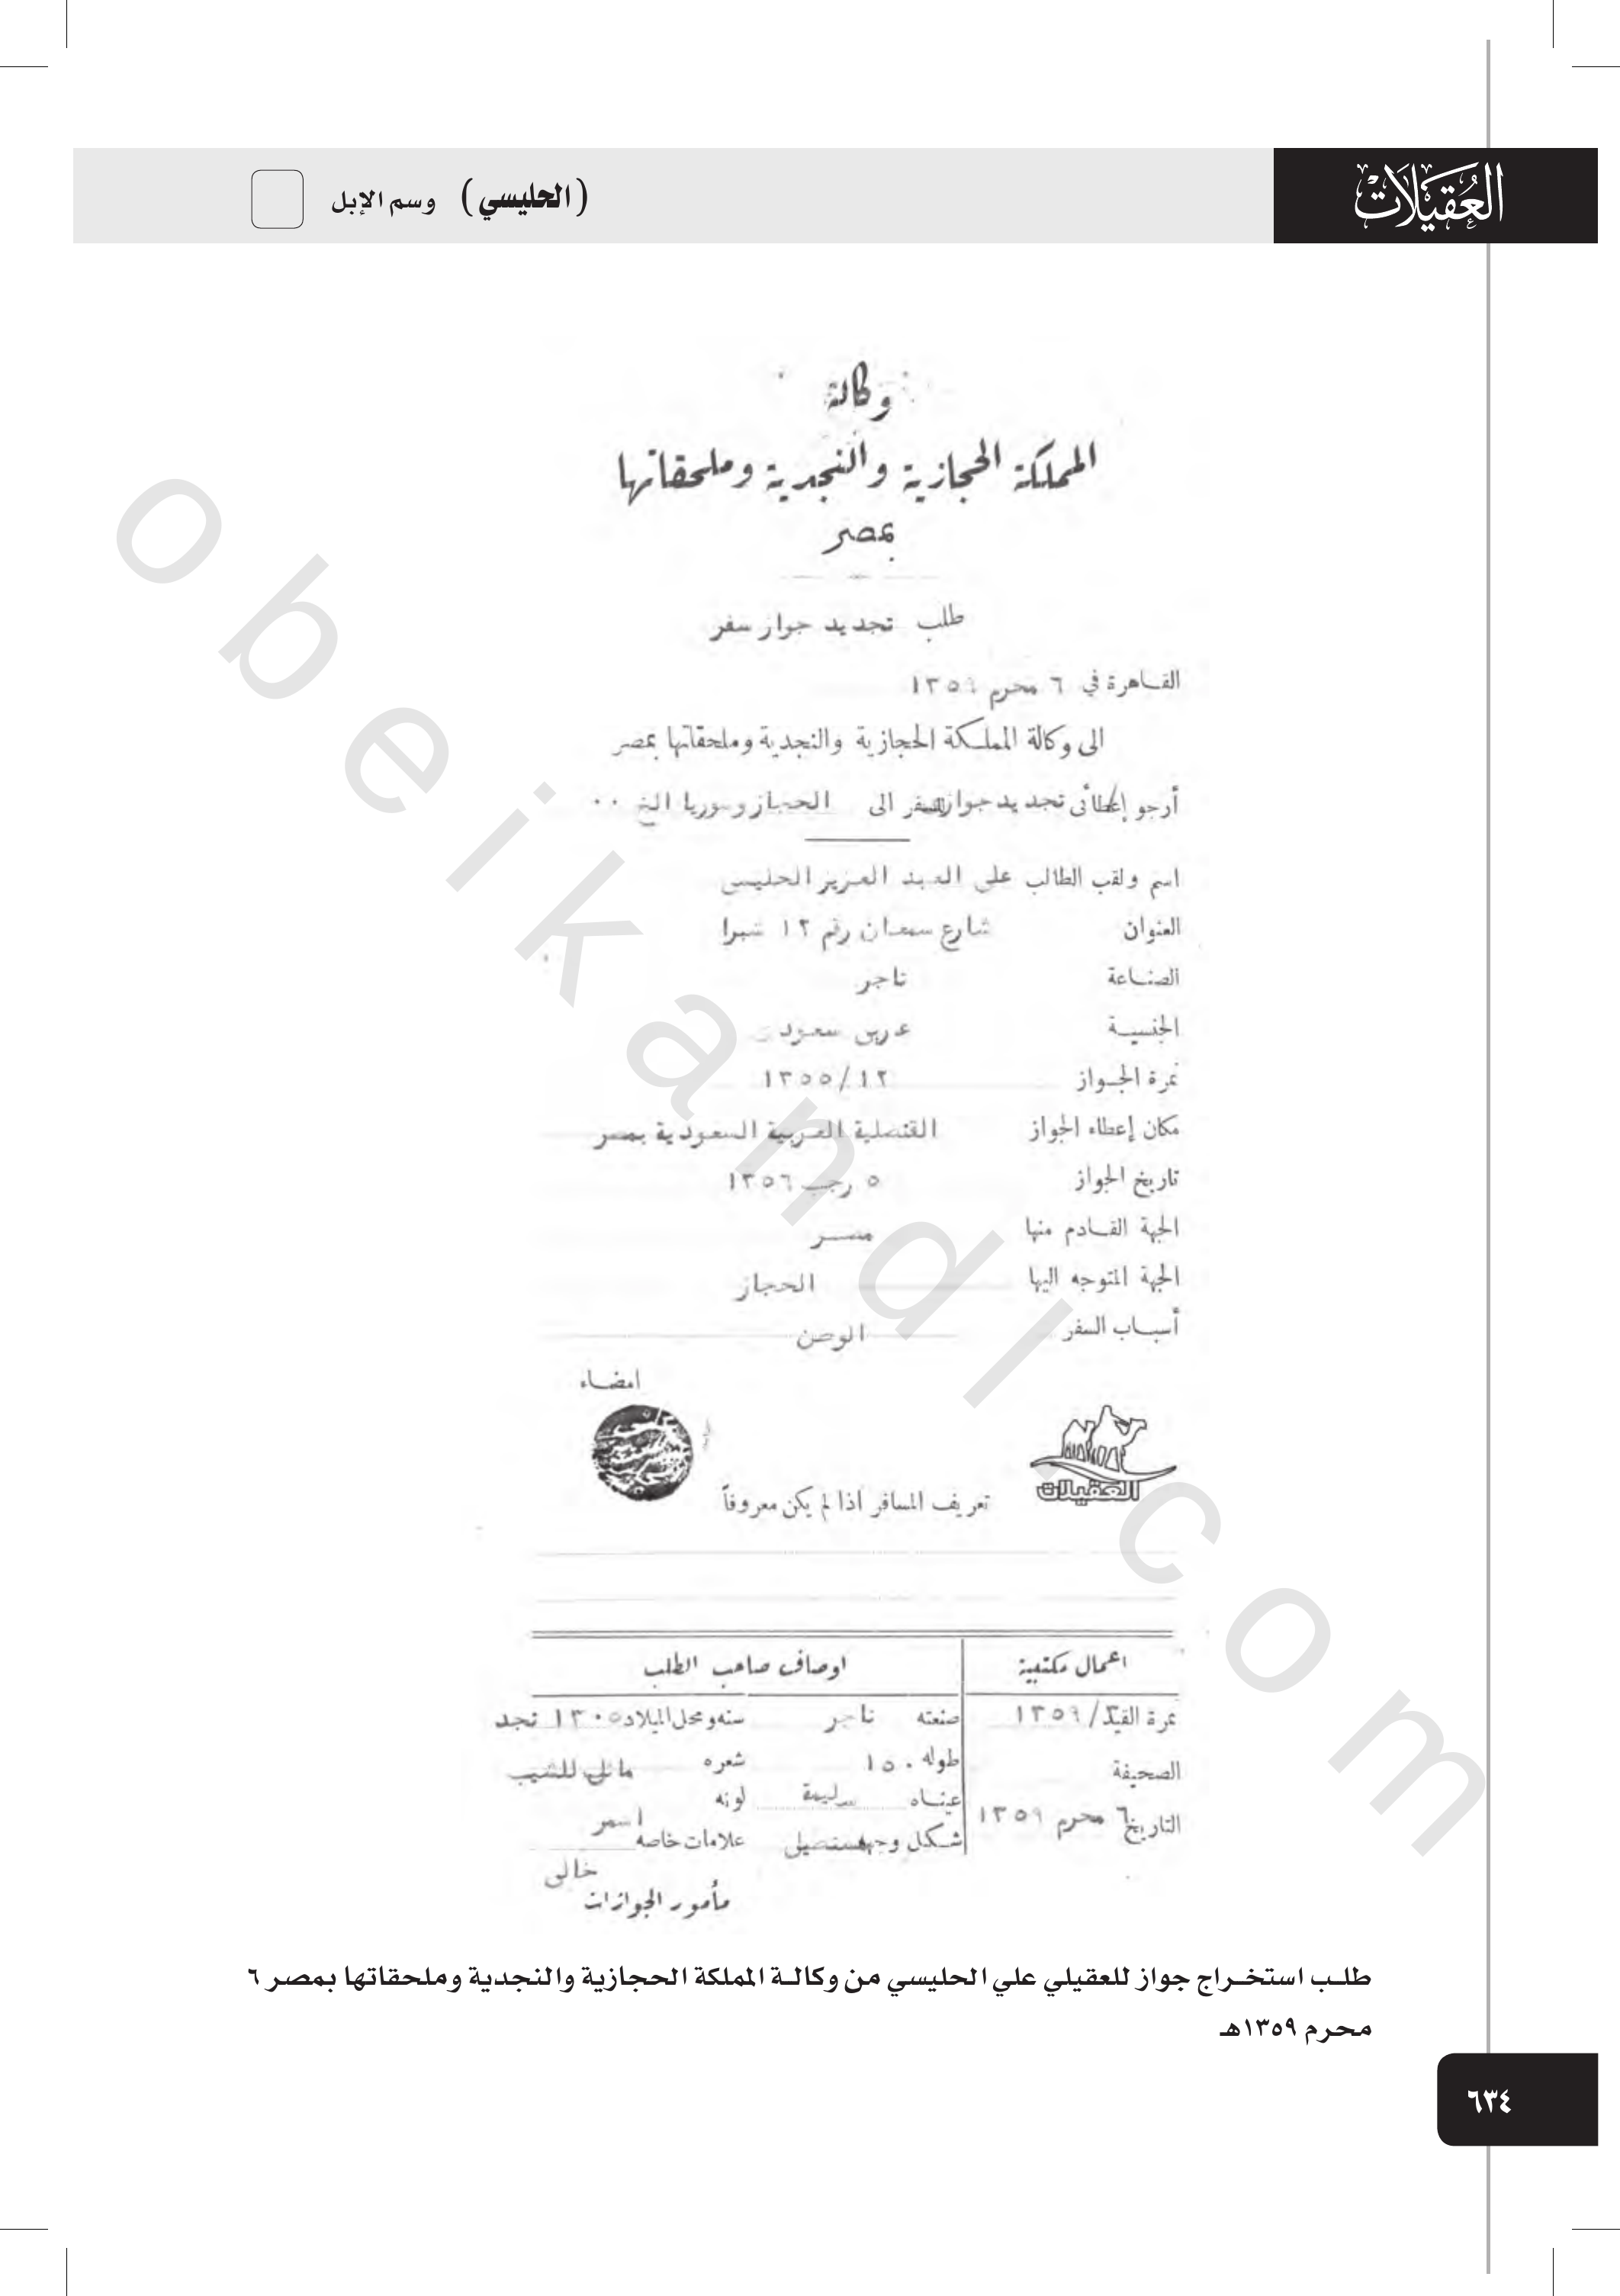 العُقَيلَات
(الحليسي) وسم الإبل
وكالة
المملكة الحجازية والنجدية وملحقاتها
بمصر
طلب تجديد جواز سفر
القاهرة في ٦ محرم ١٣٥٩
الى وكالة المملكة الحجازية والنجدية وملحقاتها بمصر
أرجو إعطائى تجديد جواز للسفر الى الحجاز وسوريا الخ ٠٠
اسم ولقب الطالب على العبد العزيز الحليسى
العنوان شارع سمعان رقم ١٢ شبرا
الصناعة تاجر
الجنسية عربى سعودى
نمرة الجواز ١٣٥٥/١٢
مكان إعطاء الجواز القنصلية العربية السعودية بمصر
تاريخ الجواز ٥ رجب ١٣٥٦
الجهة القادم منها مصر
الجهة المتوجه اليها الحجاز
أسباب السفر الوطن
امضاء
العقيلات
تعريف المسافر اذا لم يكن معروفاً
اعمال مكتبية اوصاف صاحب الطلب
نمرة القيد /١٣٥٩ صنعته تاجر سنه ومحل الميلاد ١٣٠٥ نجد
الصحيفة طوله ١٥٠ شعره مائل للشيب
التاريخ ٦ محرم ١٣٥٩ عيناه سليمة لونه اسمر
شكل وجهه علامات خاصه خالى
مأمور الجوازات
طلب استخراج جواز للعقيلي علي الحليسي من وكالة المملكة الحجازية والنجدية وملحقاتها بمصر ٦
محرم ١٣٥٩هـ
٦٣٤
obeikandl.com